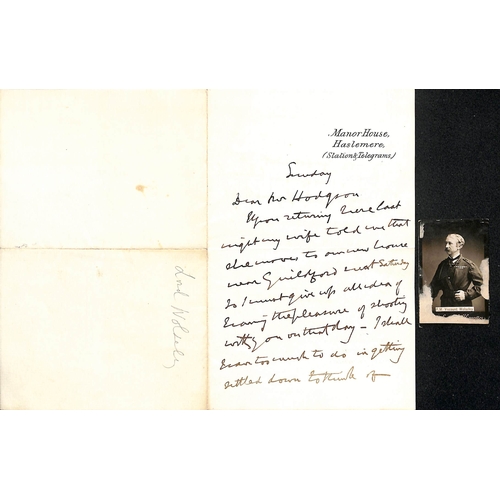 Manor House,
Haslemere,
(Station & Telegrams)
Sunday
Dear Mr Hodgson
Upon returning here last
night my wife told me that
she moves to our new house
near Guildford next Saturday
So I must give up all idea of
having the pleasure of shooting
with you on that day – I shall
have too much to do in getting
settled down to think of
Lord Wolseley
Wolseley